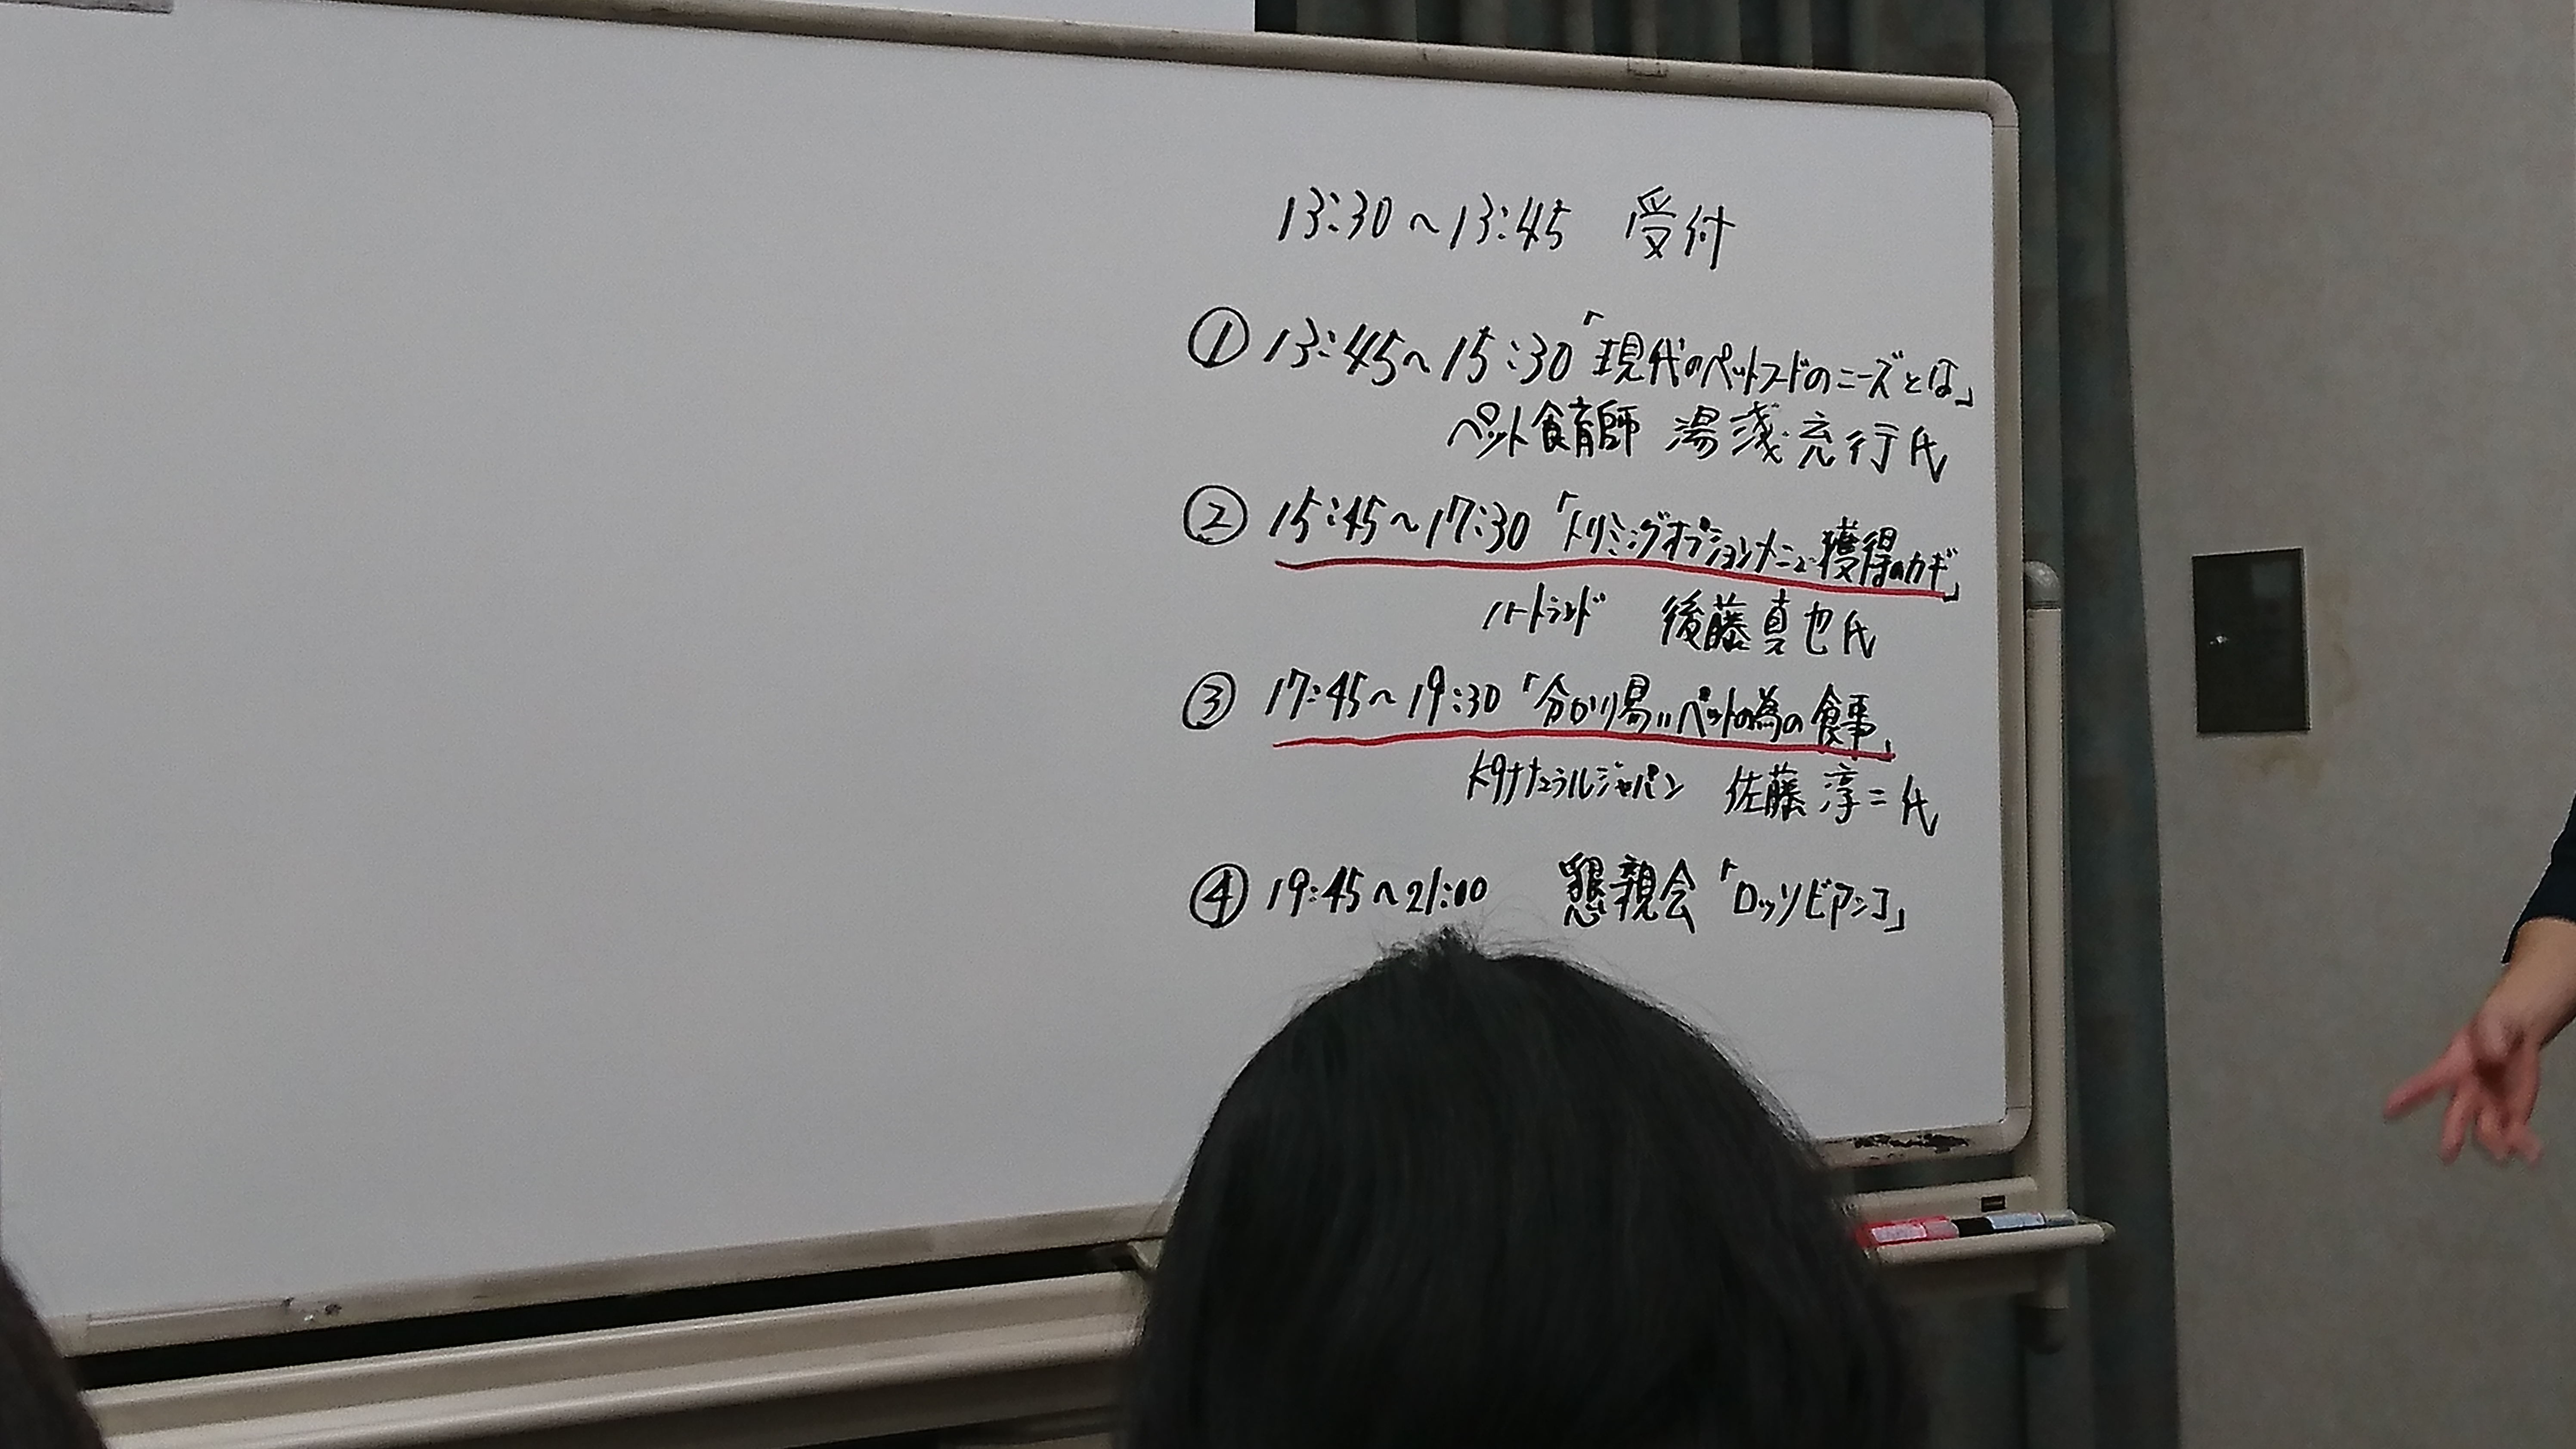 13:30～13:45 受付
① 13:45～15:30「現代のペットフードのニーズとは」
ペット食育師 湯浅充行氏
② 15:45～17:30「トリミングオプションメニュー獲得のカギ」
ハートランド 後藤真也氏
③ 17:45～19:30「分かり易いペットの為の食事」
ナチュラルジャパン 佐藤淳二氏
④ 19:45～21:00 懇親会「ロッソビアンコ」